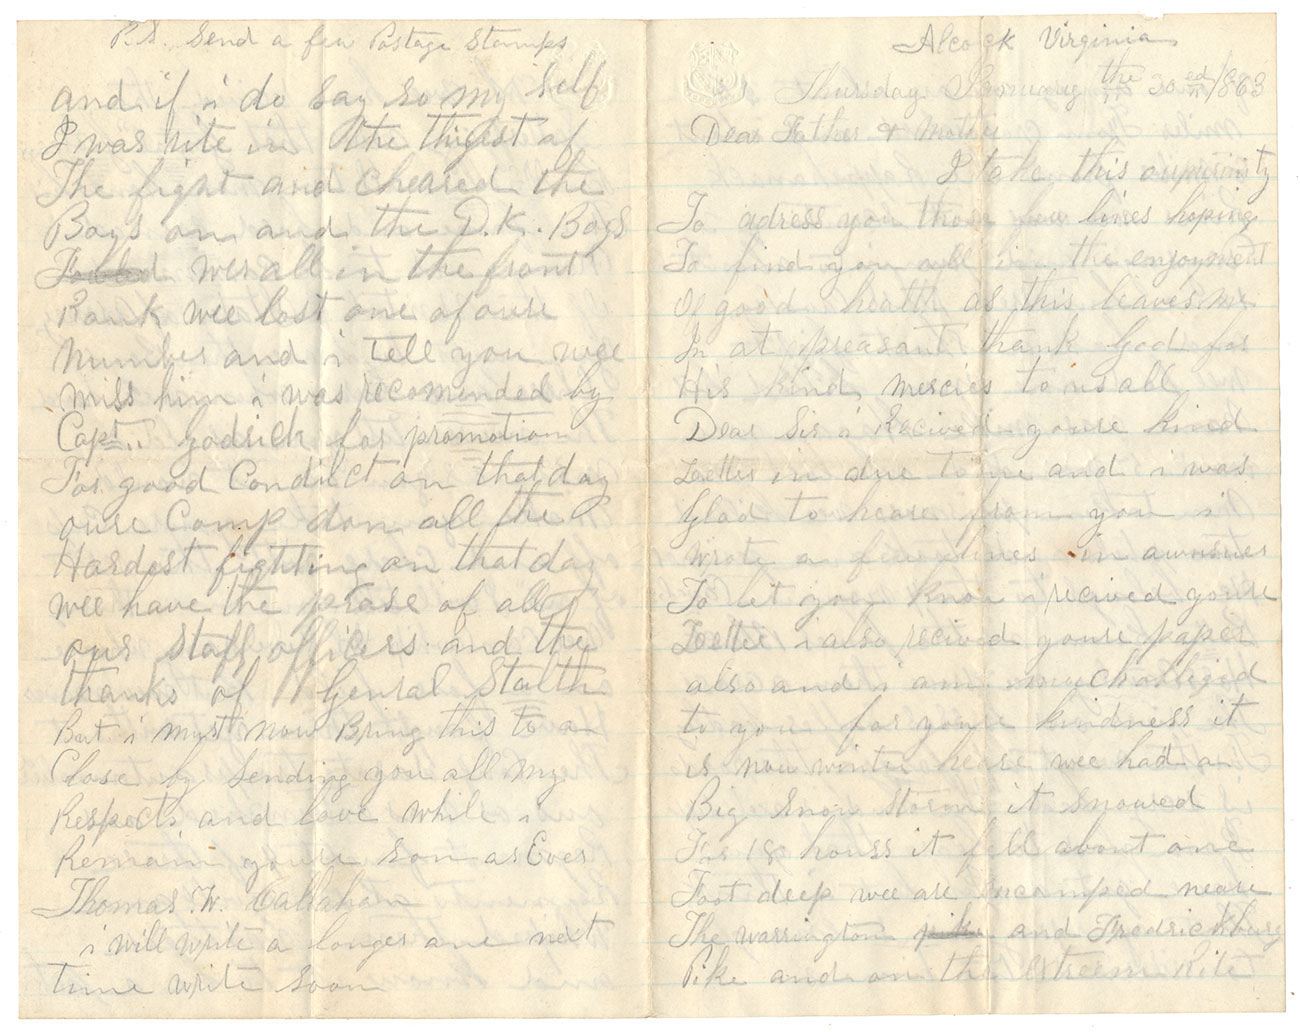 Alcock Virginia
Thursday the 30 ed /1863
Dear Father & Mother
I take this
To adress you those few lines hoping
To find you all in the enjoyment
Of good health as this leaves me
In at preasant thank God for
His kind mercies to us all
Dear Sir i Recived youre kined
Letter in due time and i was
Glad to heare from you i
wrote a few lines in awnsuer
To let you know i recived youre
Letter i also recived youre paper
also and i am much obliged
to you for youre kindness it
is now winter heare wee had a
Big Snow Storm it snowed
For 18 houss it fell about one
Foot deep wee are incamped neare
The warrington and Fredrickburg
Pike and on the extreem Rite
P.S. Send a few Postage Stamps
and if i do say so my self
I was rite in the thigest of
The fight and cheared the
Boys on and the D.K. Boys
wer all in the front
Rank wee lost one of oure
number and i tell you wee
miss him i was recomended by
Capt. Godrick for promotion
For good Condict on that day
oure Comp don all the
Hardest fighting on that day
wee have the prase of all
our Staff officers and the
thanks of Genral
But i must now Bring this to a
Close by Sending you all my
Respects and love while i
Remain youre son as Ever
Thomas W. Callahan
i will write a longer one next
time write soon